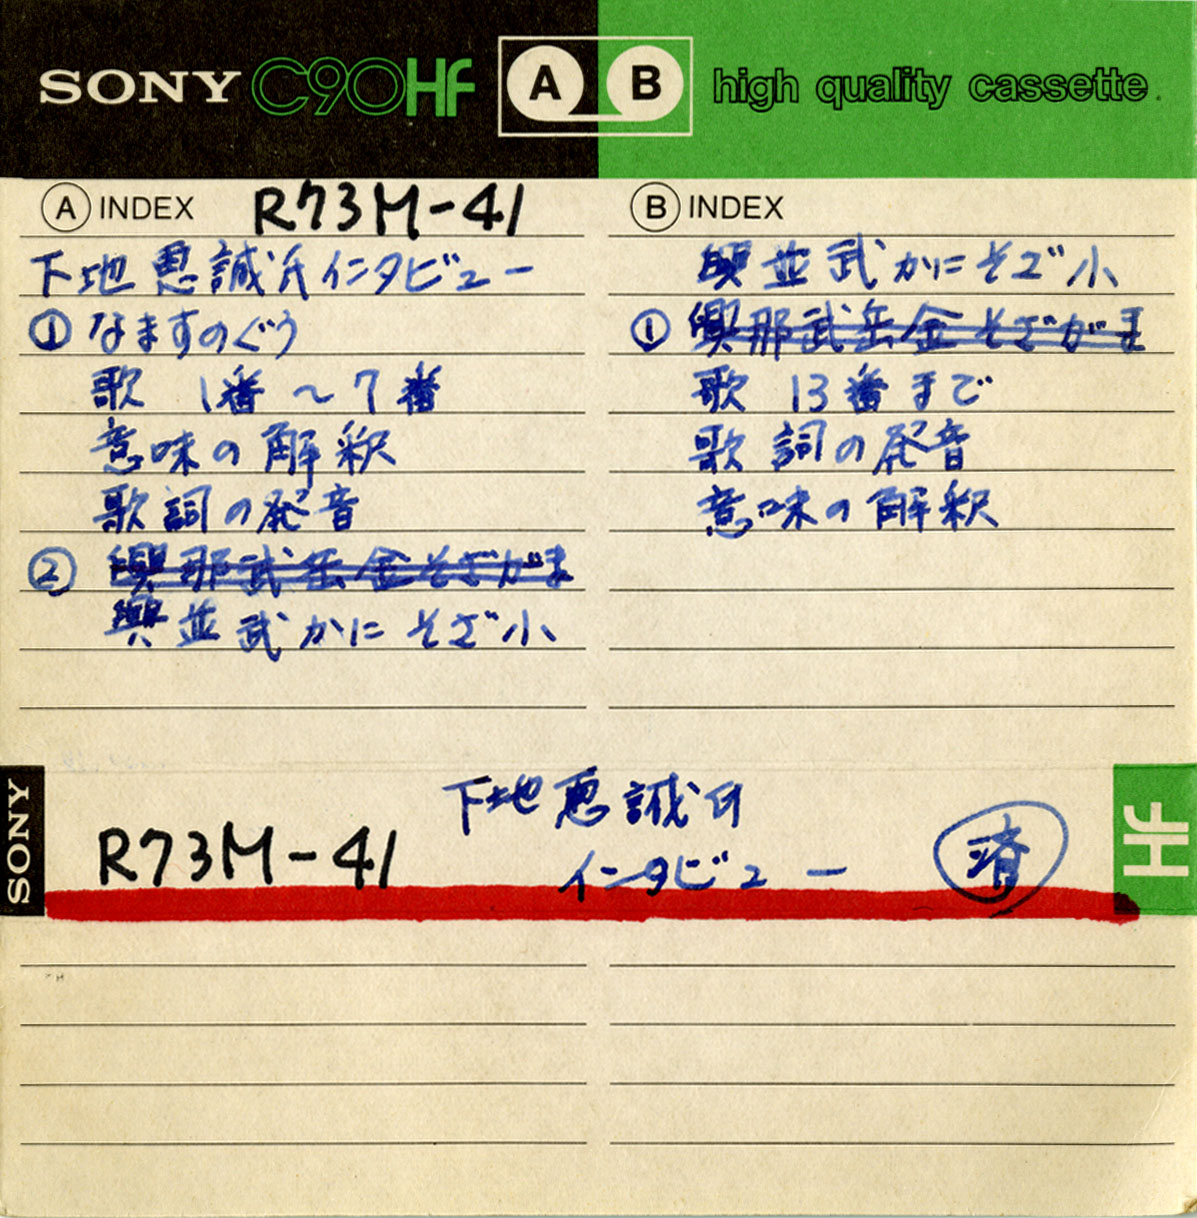 SONY C90HF A B high quality cassette.
A INDEX R73M-41
下地恵誠氏インタビュー
① なますのぐう
歌 1番〜7番
意味の解釈
歌詞の発音
② 興那武岳金そざがま
興並武かにそざ小
B INDEX
興並武かにそざ小
① 興那武岳金そざがま
歌 13番まで
歌詞の発音
意味の解釈
SONY
R73M-41
下地恵誠氏
インタビュー
済
HF